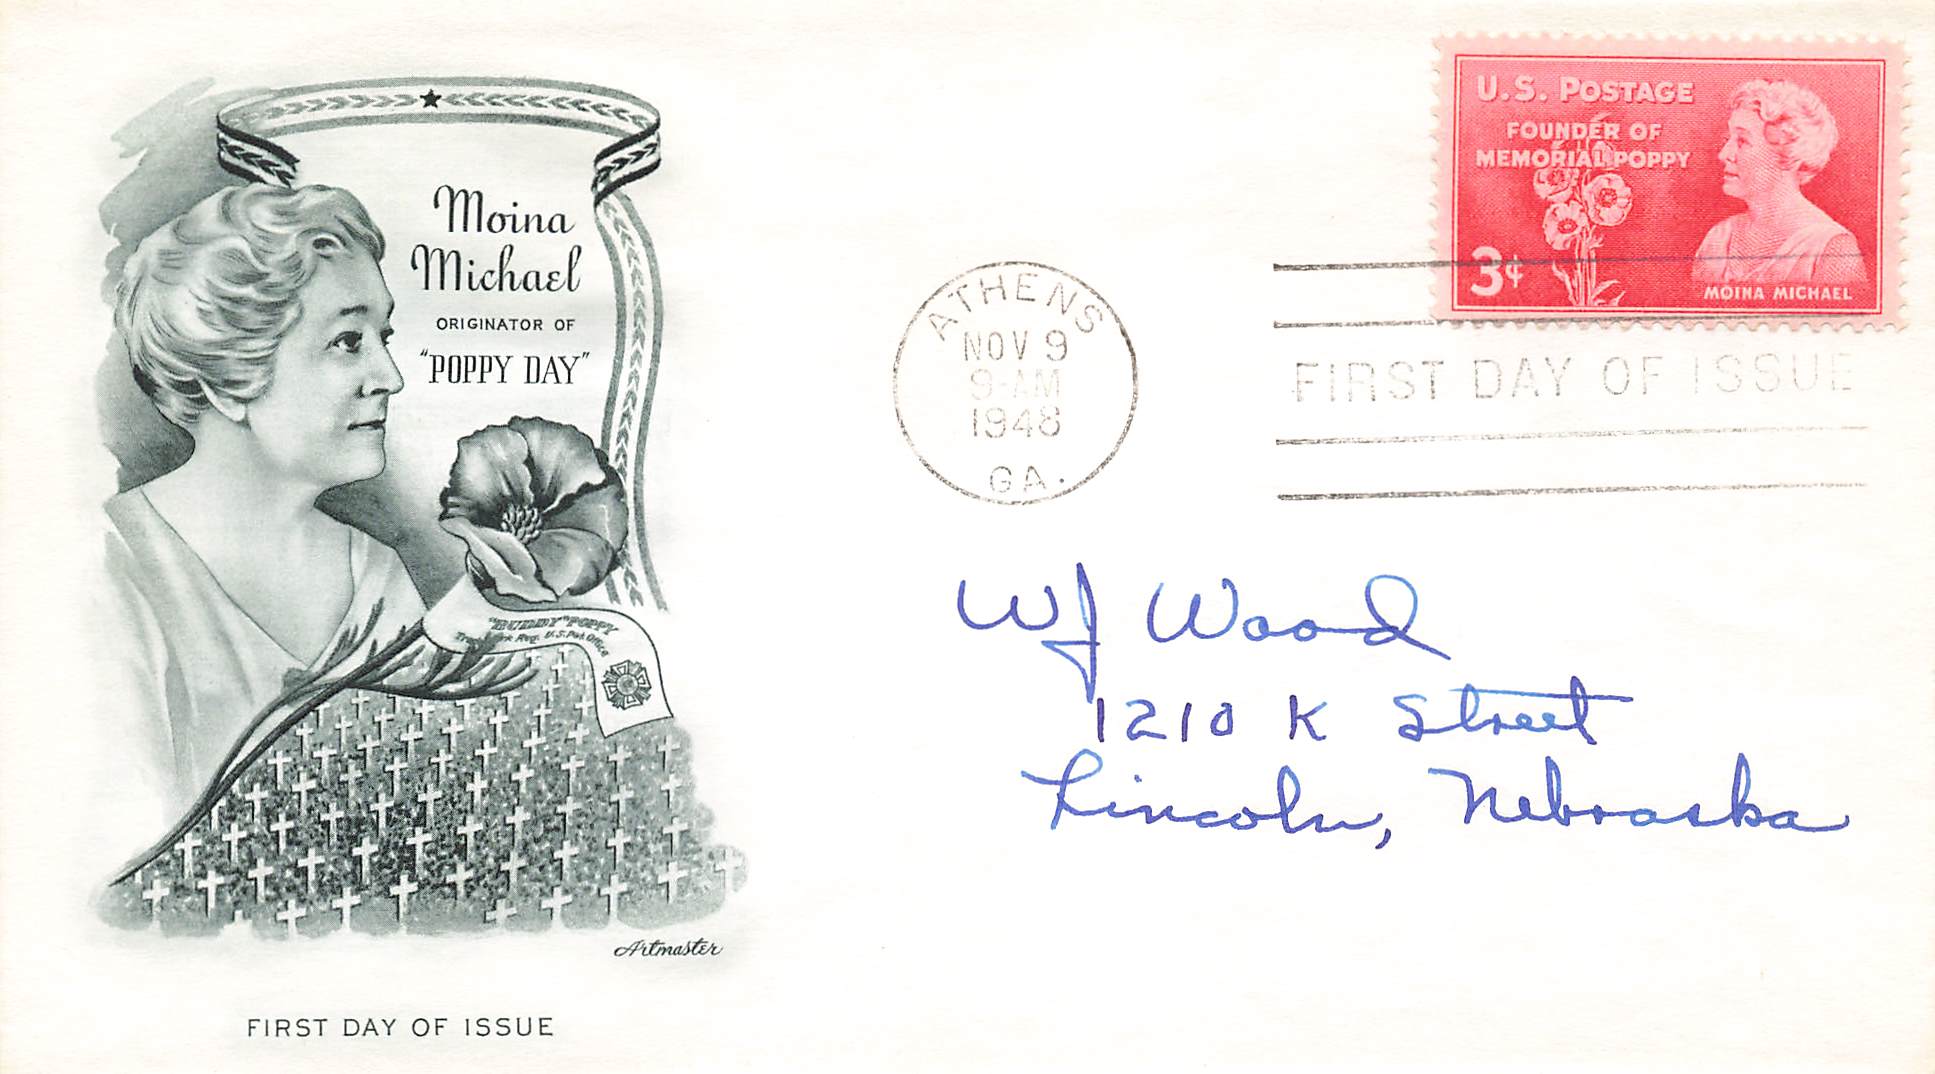 Moina
Michael
ORIGINATOR OF
"POPPY DAY"
"BUDDY" POPPY
Trade Mark Reg. U.S. Pat. Office
Artmaster
FIRST DAY OF ISSUE
U.S. POSTAGE
FOUNDER OF
MEMORIAL POPPY
3¢
MOINA MICHAEL
ATHENS
NOV 9
9-AM
1948
GA.
FIRST DAY OF ISSUE
WJ Wood
1210 K Street
Lincoln, Nebraska